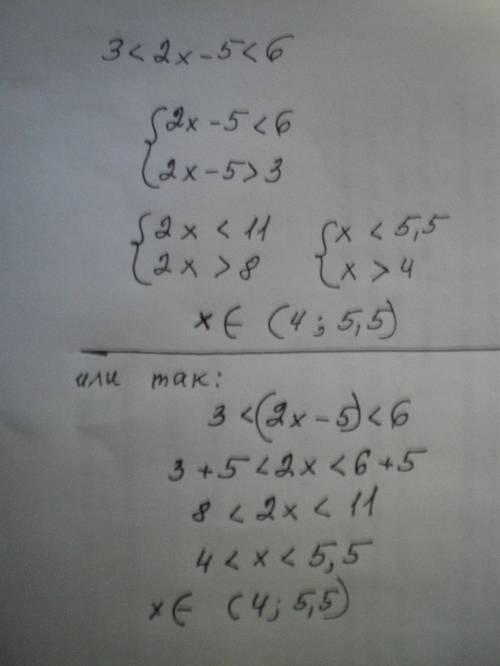 3 < 2x - 5 < 6
{ 2x - 5 < 6
{ 2x - 5 > 3
{ 2x < 11 { x < 5,5
{ 2x > 8 { x > 4
x ∈ (4 ; 5,5)
или так:
3 < (2x - 5) < 6
3 + 5 < 2x < 6 + 5
8 < 2x < 11
4 < x < 5,5
x ∈ (4 ; 5,5)